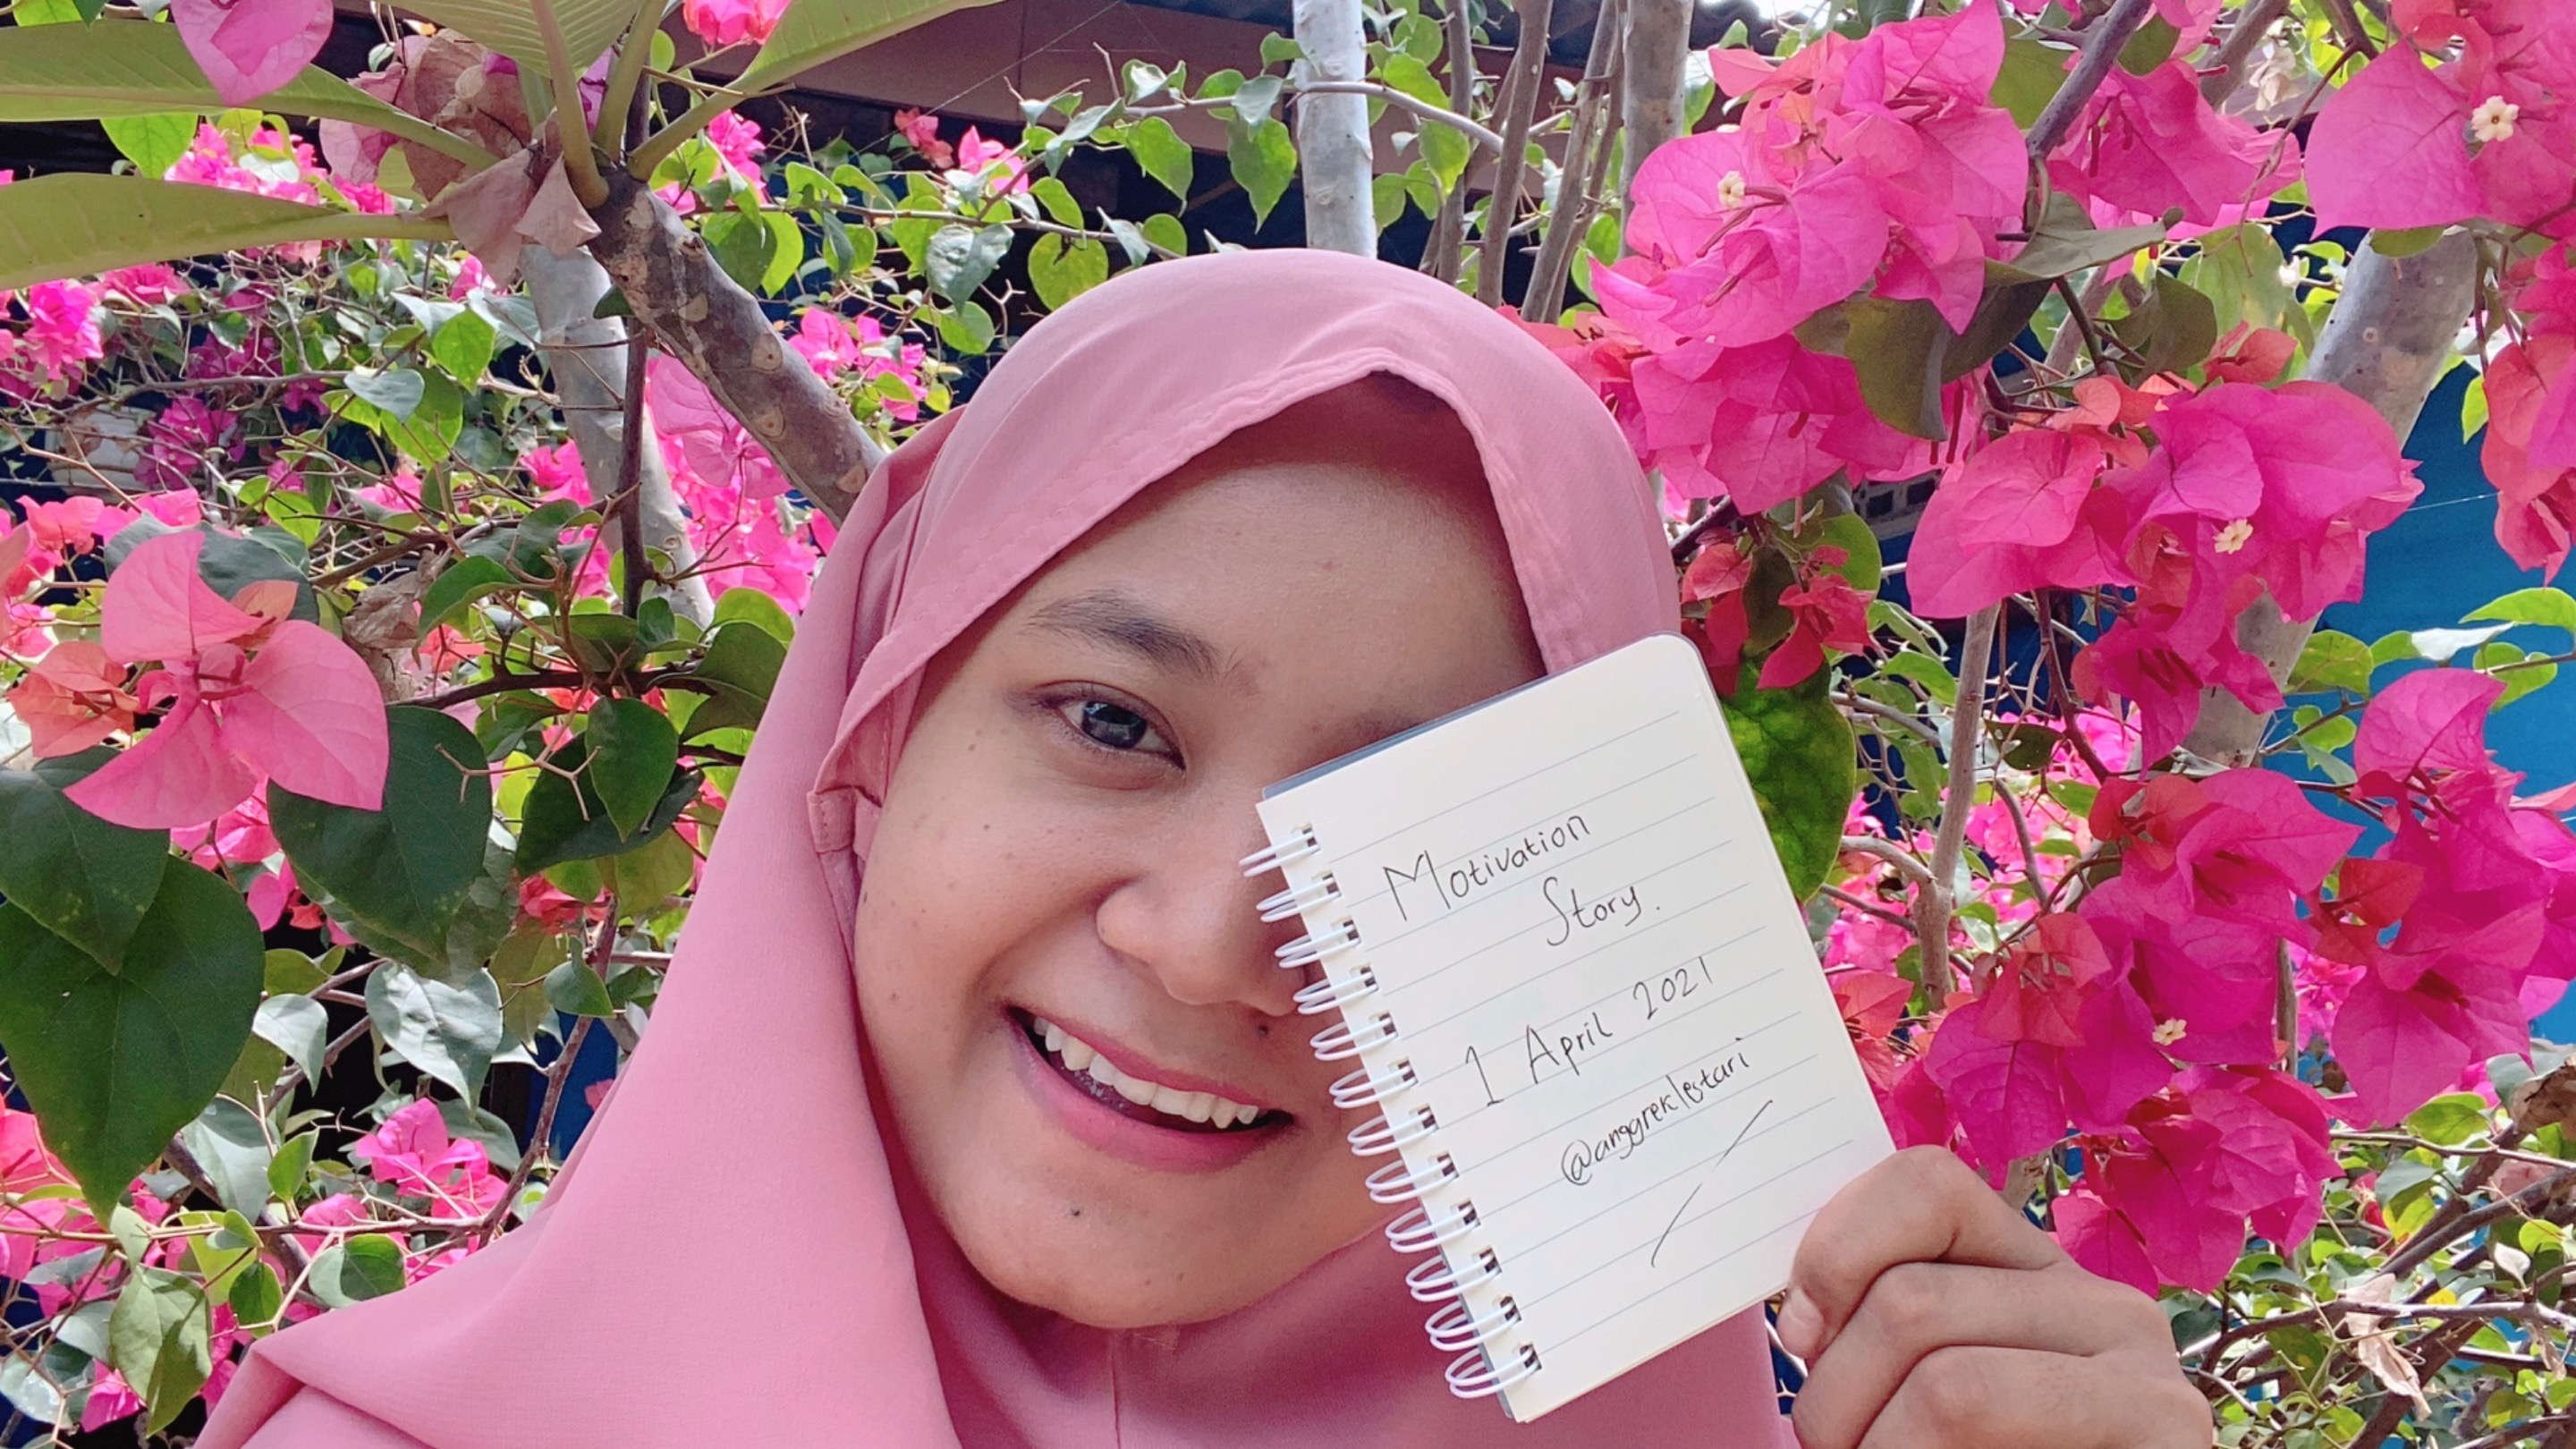 Motivation
Story.
1 April 2021
@anggreklestari